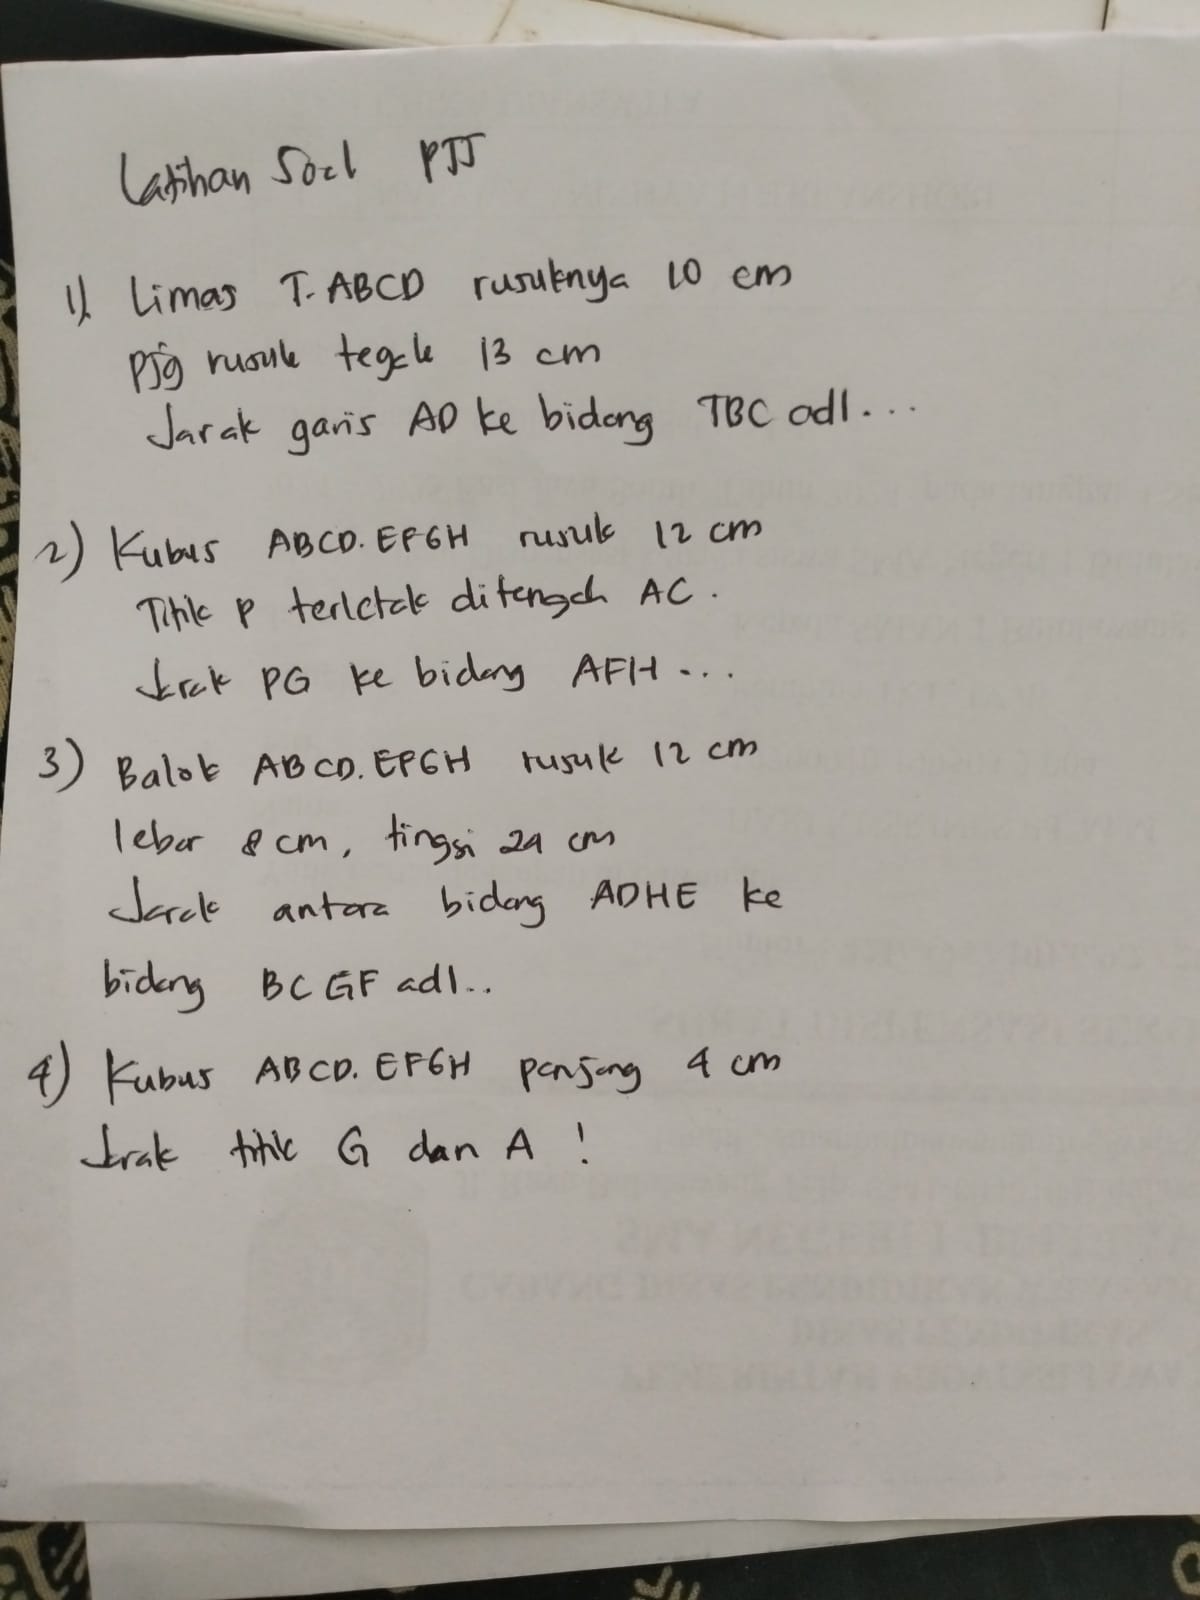 Latihan Soal PJJ
1). Limas T.ABCD rusuknya 10 cm
pjg rusuk tegak 13 cm
Jarak garis AD ke bidang TBC adl...
2) Kubus ABCD.EFGH rusuk 12 cm
Titik P terletak ditengah AC.
Jarak PG ke bidang AFH ...
3) Balok ABCD.EFGH rusuk 12 cm
lebar 8 cm, tinggi 24 cm
Jarak antara bidang ADHE ke
bidang BCGF adl..
4) Kubus ABCD.EFGH panjang 4 cm
Jarak titik G dan A !